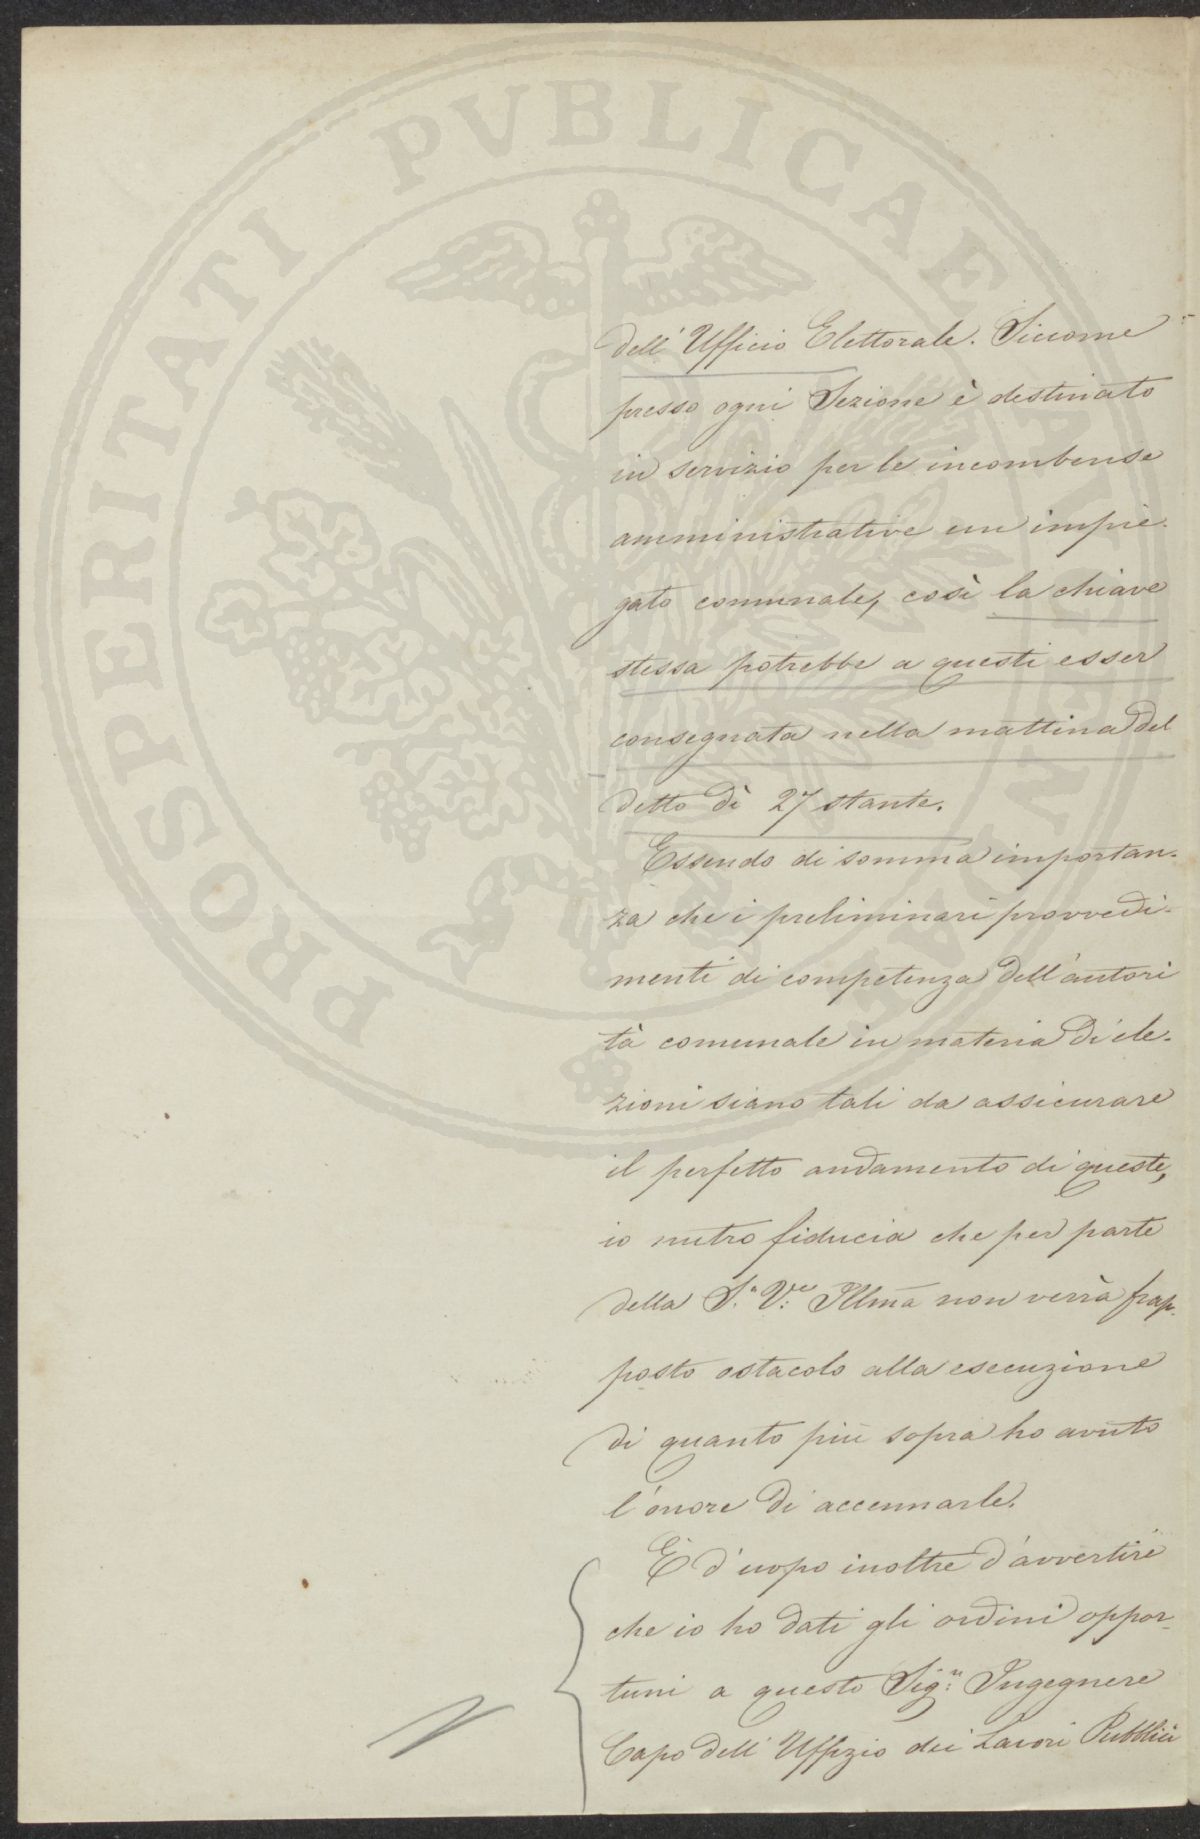 PROSPERITATI PVBLICAE AVGENDAE
dell'Ufficio Elettorale. Siccome
presso ogni Sezione è destinato
in servizio per le incombense
amministrative un impie-
gato comunale, così la chiave
stessa potrebbe a questi esser
consegnata nella mattina del
detto dì 27 stante.
Essendo di somma importan-
za che i preliminari provvedi-
menti di competenza dell'autori
tà comunale in materia di ele-
zioni siano tali da assicurare
il perfetto andamento di queste,
io nutro fiducia che per parte
della S.a V.ra Illma non verrà frap-
posto ostacolo alla esecuzione
di quanto più sopra ho avuto
l'onore di accennarle.
È d'uopo inoltre d'avvertire
che io ho dati gli ordini oppor-
tuni a questo Sig.r Ingegnere
Capo dell'Uffizio dei Lavori Pubblici